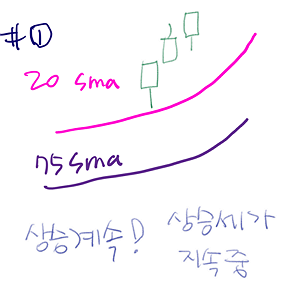 #①
20 sma
75 sma
상승계속!
상승세가
지속중